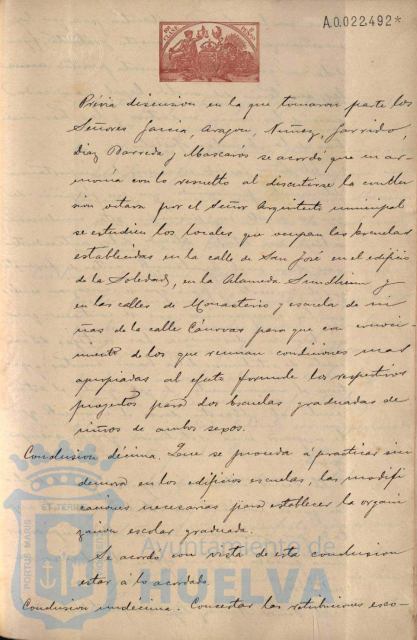 A.0.022.492*
Prévia discusion en la que tomaron parte los
Señores García, Aragon, Nuñez, Garrido,
Diaz Barreda y Mascarós se acordó que en ar-
monía con lo resuelto al discutirse la conclu-
sion octava por el Señor Arquitecto municipal
se estudien los locales que ocupan las Escuelas
establecidas en la calle de San José en el edificio
de la Soledad, en la Alameda Sundheim y
en las calles de Monasterio y escuela de ni-
ñas de la calle Cánovas para que con conoci-
miento de los que reunan condiciones mas
apropiadas al efecto formule los respectivos
proyectos para dos Escuelas graduadas de
niños de ambos sexos.
Conclusion décima. Que se proceda á practicar sin
demora en los edificios escuelas, las modifi-
caciones necesarias para establecer la organi-
zacion escolar graduada.
Se acordó con vista de esta conclusion
estar á lo acordado.
Conclusion undécima. Concertar las retribuciones esco-
PORTUS MARIS ET TERRAE
Ayuntamiento de
HUELVA